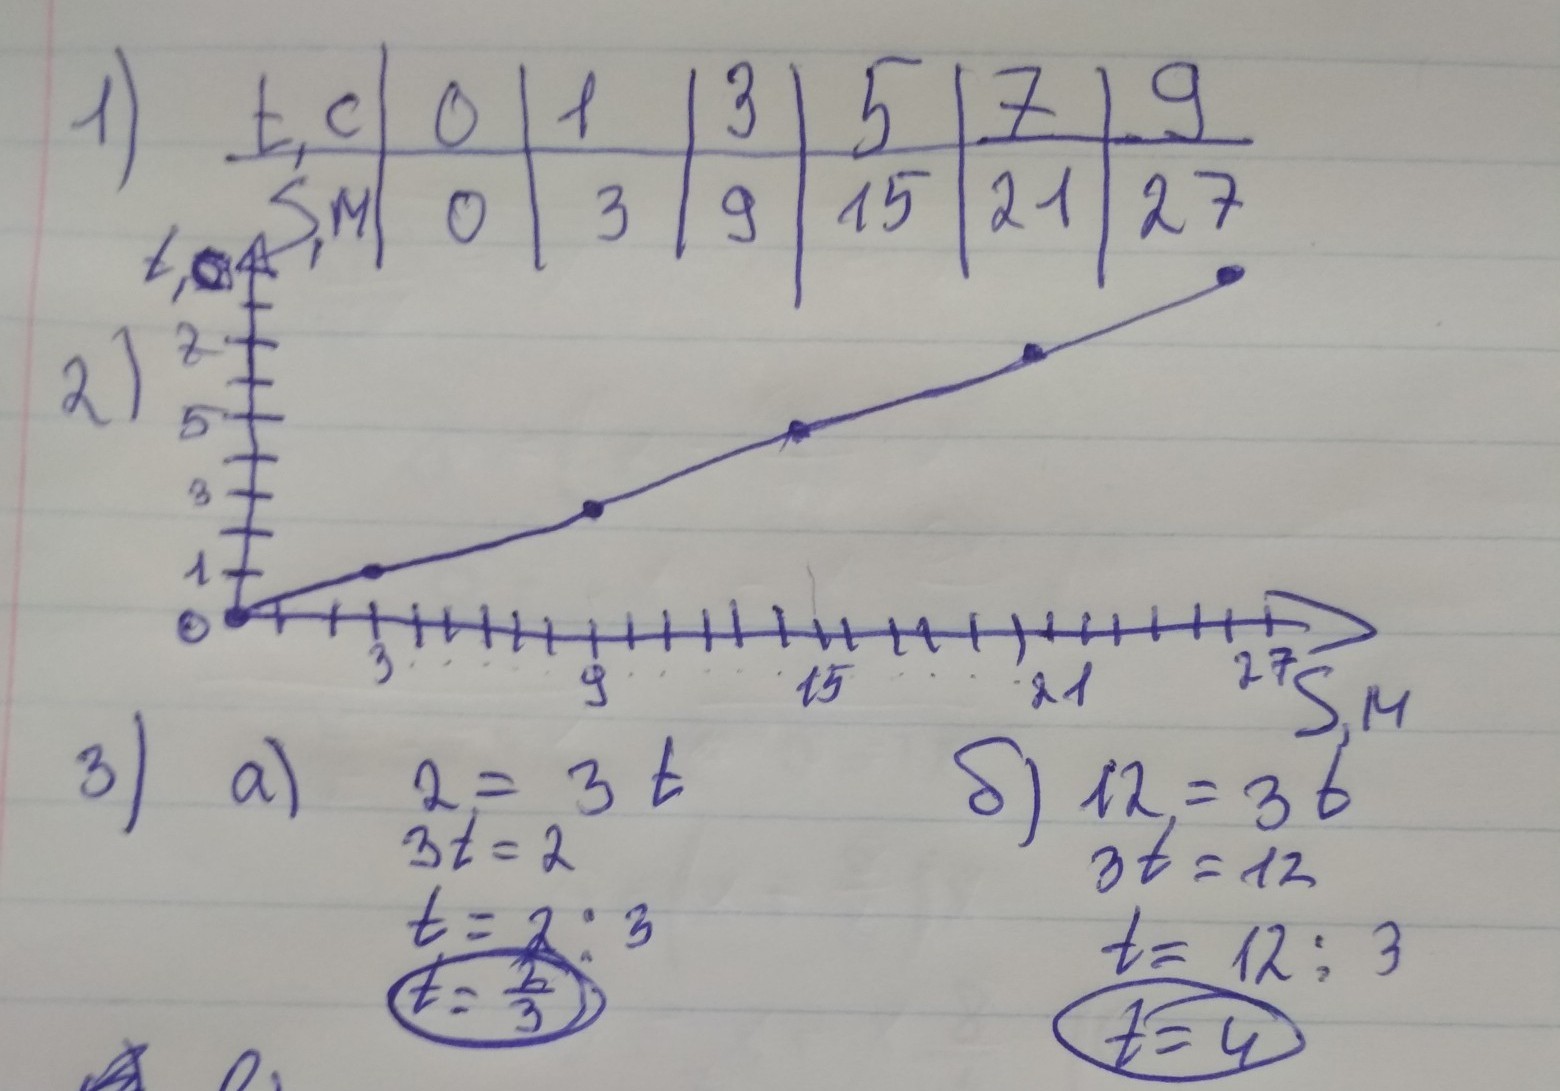 1) t, c 0 1 3 5 7 9
S, м 0 3 9 15 21 27
t,
2) 7
5
3
1
0
3 9 15 21 27
S, м
3) а) 2 = 3 t б) 12 = 3 t
3t = 2 3t = 12
t = 2 : 3 t = 12 : 3
t = 2/3 t = 4